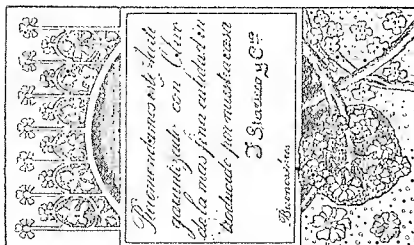 Recomendamos este
garantizado con
de la mas fina calidad in
troducido por nuestra casa
J. y Cia
Buenos Aires